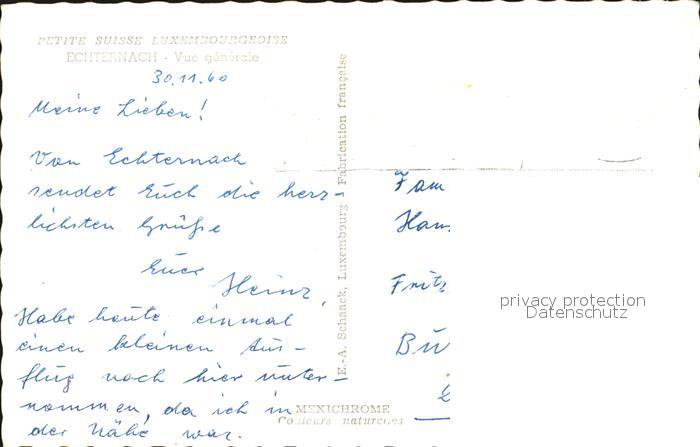 PETITE SUISSE LUXEMBOURGEOISE
ECHTERNACH - Vue générale
30.11.60
Meine Lieben!
Von Echternach
sendet Euch die herz-
lichsten Grüße
Euer
Heinz.
Habe heute einmal
einen kleinen Aus-
flug nach hier unter-
nommen, da ich in
der Nähe war.
E.-A. Schaack, Luxembourg Fabrication française
MEXICHROME
Couleurs naturelles
Fam
Han
Fritz
Bu
privacy protection
Datenschutz